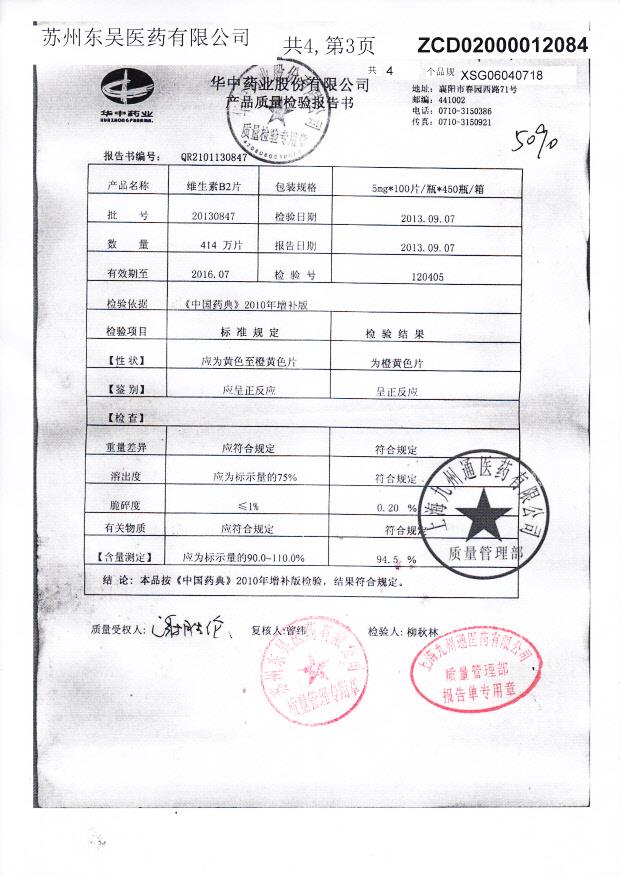 苏州东吴医药有限公司 共4,第3页 ZCD02000012084
共 4 个品规 XSG06040718
华中药业
HUAZHONG PHARMA.
华中药业股份有限公司
产品质量检验报告书
质量检验专用章
地址: 襄阳市春园西路71号
邮编: 441002
电话: 0710-3150386
传真: 0710-3150921
50%
报告书编号: QR2101130847
产品名称 维生素B2片 包装规格 5mg*100片/瓶*450瓶/箱
批 号 20130847 检验日期 2013.09.07
数 量 414 万片 报告日期 2013.09.07
有效期至 2016.07 检 验 号 120405
检验依据 《中国药典》2010年增补版
检验项目 标 准 规 定 检 验 结 果
【性 状】 应为黄色至橙黄色片 为橙黄色片
【鉴 别】 应呈正反应 呈正反应
【检 查】
重量差异 应符合规定 符合规定
溶出度 应为标示量的75% 符合规定
脆碎度 ≤1% 0.20 %
有关物质 应符合规定 符合规定
【含量测定】 应为标示量的90.0~110.0% 94.5 %
结 论: 本品按《中国药典》2010年增补版检验, 结果符合规定。
上海九州通医药有限公司
质量管理部
质量受权人: 复核人:曾纬 检验人: 柳秋林
苏州东吴医药有限公司
质量管理专用章
上海九州通医药有限公司
质量管理部
报告单专用章